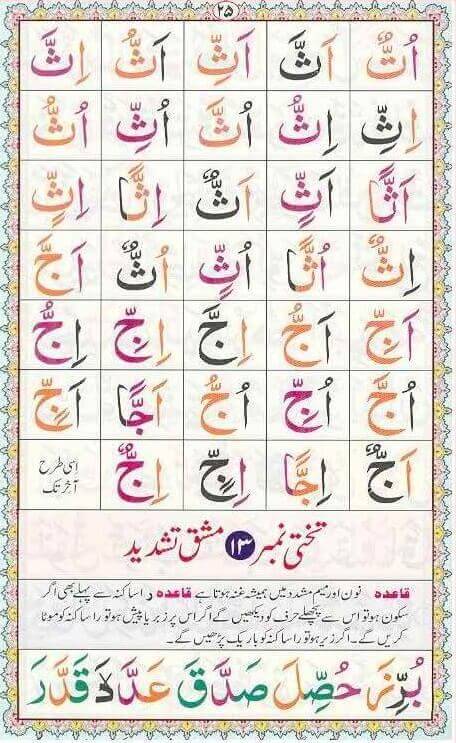 ۲۵
اُتٌّ اَثَّ اَثِّ اَثُّ اِثَّ
اِثِّ اِثُّ اُثَّ اُثِّ اُثُّ
اَثًّا اَثٍّ اَثٌّ اِثًّا اِثٍّ
اِثٌّ اُثًّا اُثٍّ اُثٌّ اَجَّ
اَجِّ اَجُّ اِجَّ اِجِّ اِجُّ
اُجَّ اُجِّ اُجُّ اَجًّا اَجٍّ
اَجٌّ اِجًّا اِجٍّ اِجٌّ اسی طرح آخر تک
تختی نمبر ۱۳ مشق تشدید
قاعدہ نون اور میم مشدد میں ہمیشہ غنہ ہوتا ہے قاعدہ را ساکنہ سے پہلے بھی اگر
سکون ہو تو اس سے پچھلے حرف کو دیکھیں گے اگر اس پر زبر یا پیش ہو تو را ساکنہ کو موٹا
کریں گے۔ اگر زیر ہو تو را ساکنہ کو باریک پڑھیں گے۔
بُرِّزَ حُصِّلَ صَدَّقَ قَدَّرَ